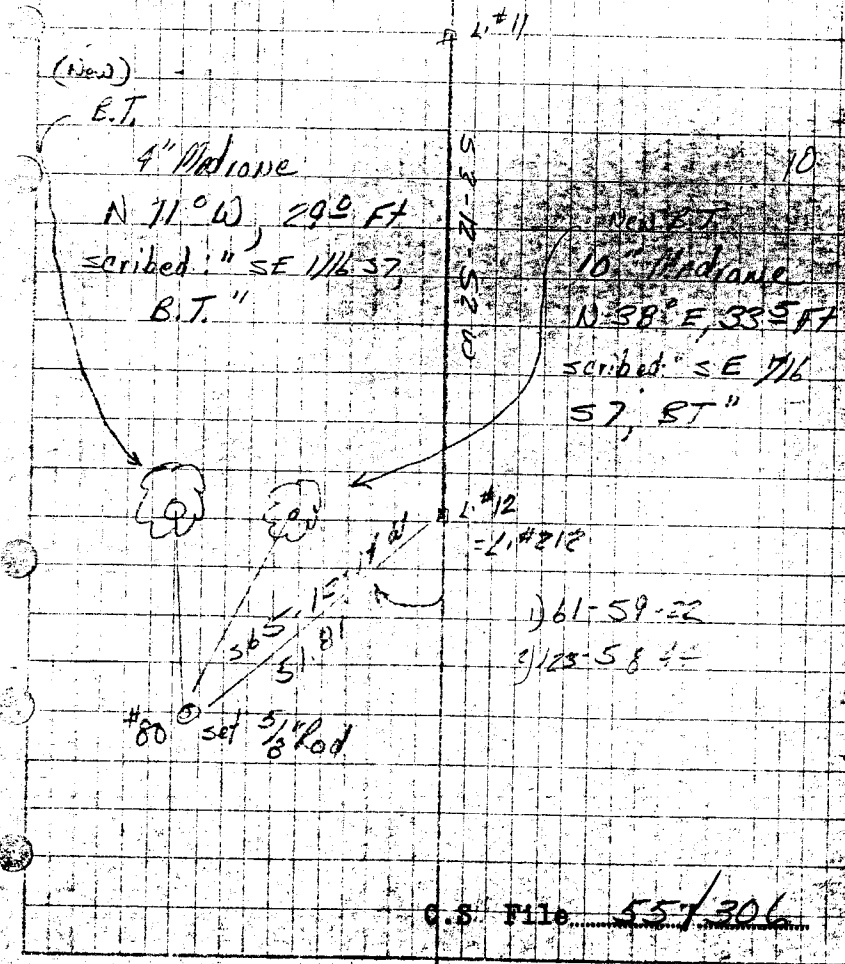 L.#11
(New)
B.T.
4" Madrone
N 71° W, 29⁰ Ft
scribed: "SE 1/16 S7,
B.T."
10
New B.T.
10" Madrone
N 38° E, 33⁵ Ft
scribed: "SE 1/16
S7, BT"
L.#12
=L.#212
1) 61-59-22
2) 123-58
51.81
#80 set 5/8" Rod
C.S File 557/306